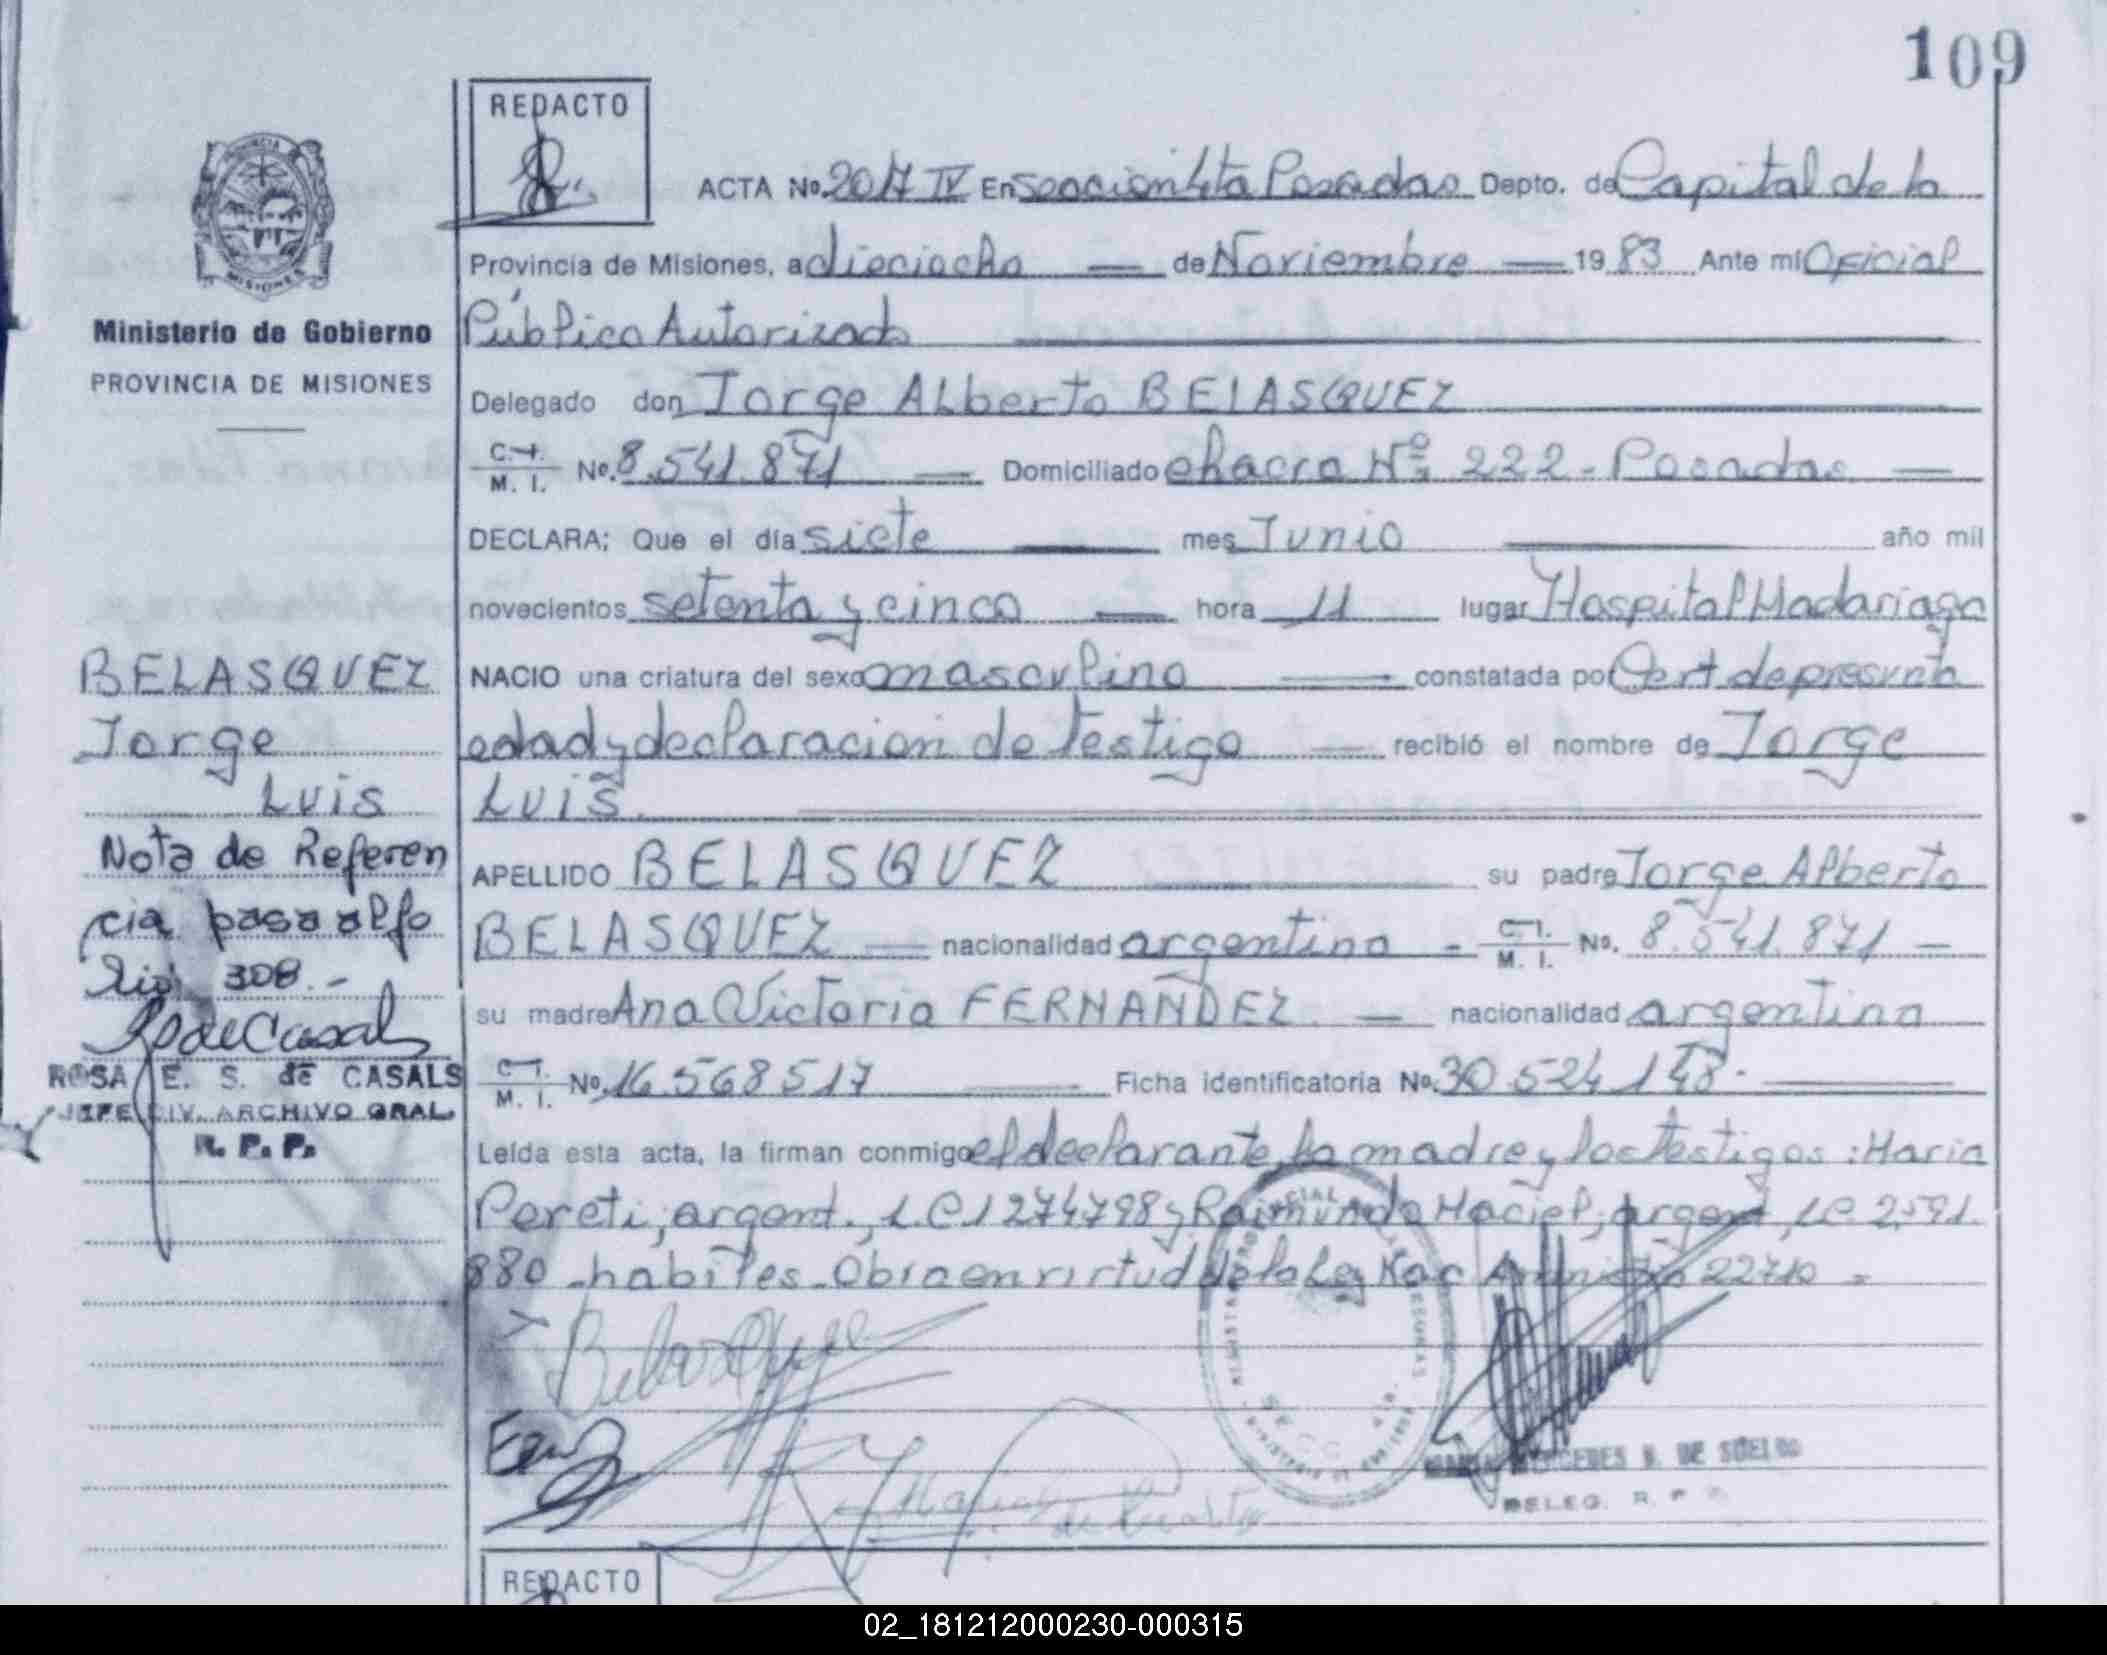 109
REDACTO
ACTA No. 2017 IV En seccion 4ta Posadas Depto. de Capital de la
PROVINCIA
MISIONES
Provincia de Misiones, a dieciocho — de Noviembre — 1983 Ante mí Oficial
Ministerio de Gobierno
Público Autorizado
PROVINCIA DE MISIONES
Delegado don Jorge Alberto BELASQUEZ
C. I. M. I. No. 8.541.871 — Domiciliado chacra Nº 222 - Posadas —
DECLARA; Que el día siete — mes Junio — año mil
novecientos setenta y cinco — hora 11 lugar Hospital Madariaga
BELASQUEZ
NACIO una criatura del sexo masculino — constatada po Cert de presunta
Jorge
edad y declaracion de testigo — recibió el nombre de Jorge
Luis
Luis.
Nota de Referen
APELLIDO BELASQUEZ su padre Jorge Alberto
cia pasa al fo
BELASQUEZ — nacionalidad argentino - C. I. M. I. No. 8.541.871 —
lio 308.-
su madre Ana Victoria FERNANDEZ — nacionalidad argentina
R S de Casals
ROSA E. S. de CASALS
C. I. M. I. No. 16.568517 — Ficha identificatoria No. 30.524.148. —
JEFE DIV. ARCHIVO GRAL.
R. P. P.
Leída esta acta, la firman conmigo el declarante la madre y los testigos: Maria
Pereti, argent., L.C 1274798 y Raimundo Maciel, argent, L.E. 2.591.
880 - habiles - Obra en virtud de la Ley Nac 22710 -
Belasquez
MERCEDES DE SUELDO
DELEG. R. P.
REDACTO
02_181212000230-000315